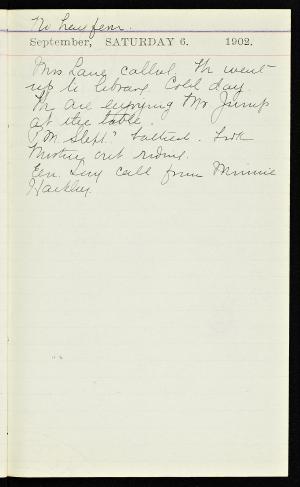 No hay fever.
September, SATURDAY 6. 1902.
Mrs Lane called. We went
up to library Cold day.
We are enjoying Mr Jump
at the table.
P.M. Slept. bathed. Took
out riding.
Eve. Long call from Minnie
Hackley